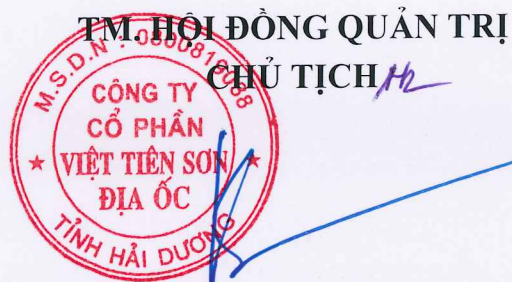 TM. HỘI ĐỒNG QUẢN TRỊ
CHỦ TỊCH
M.S.D.N : 0800819038
CÔNG TY
CỔ PHẦN
VIỆT TIÊN SƠN
ĐỊA ỐC
TỈNH HẢI DƯƠNG